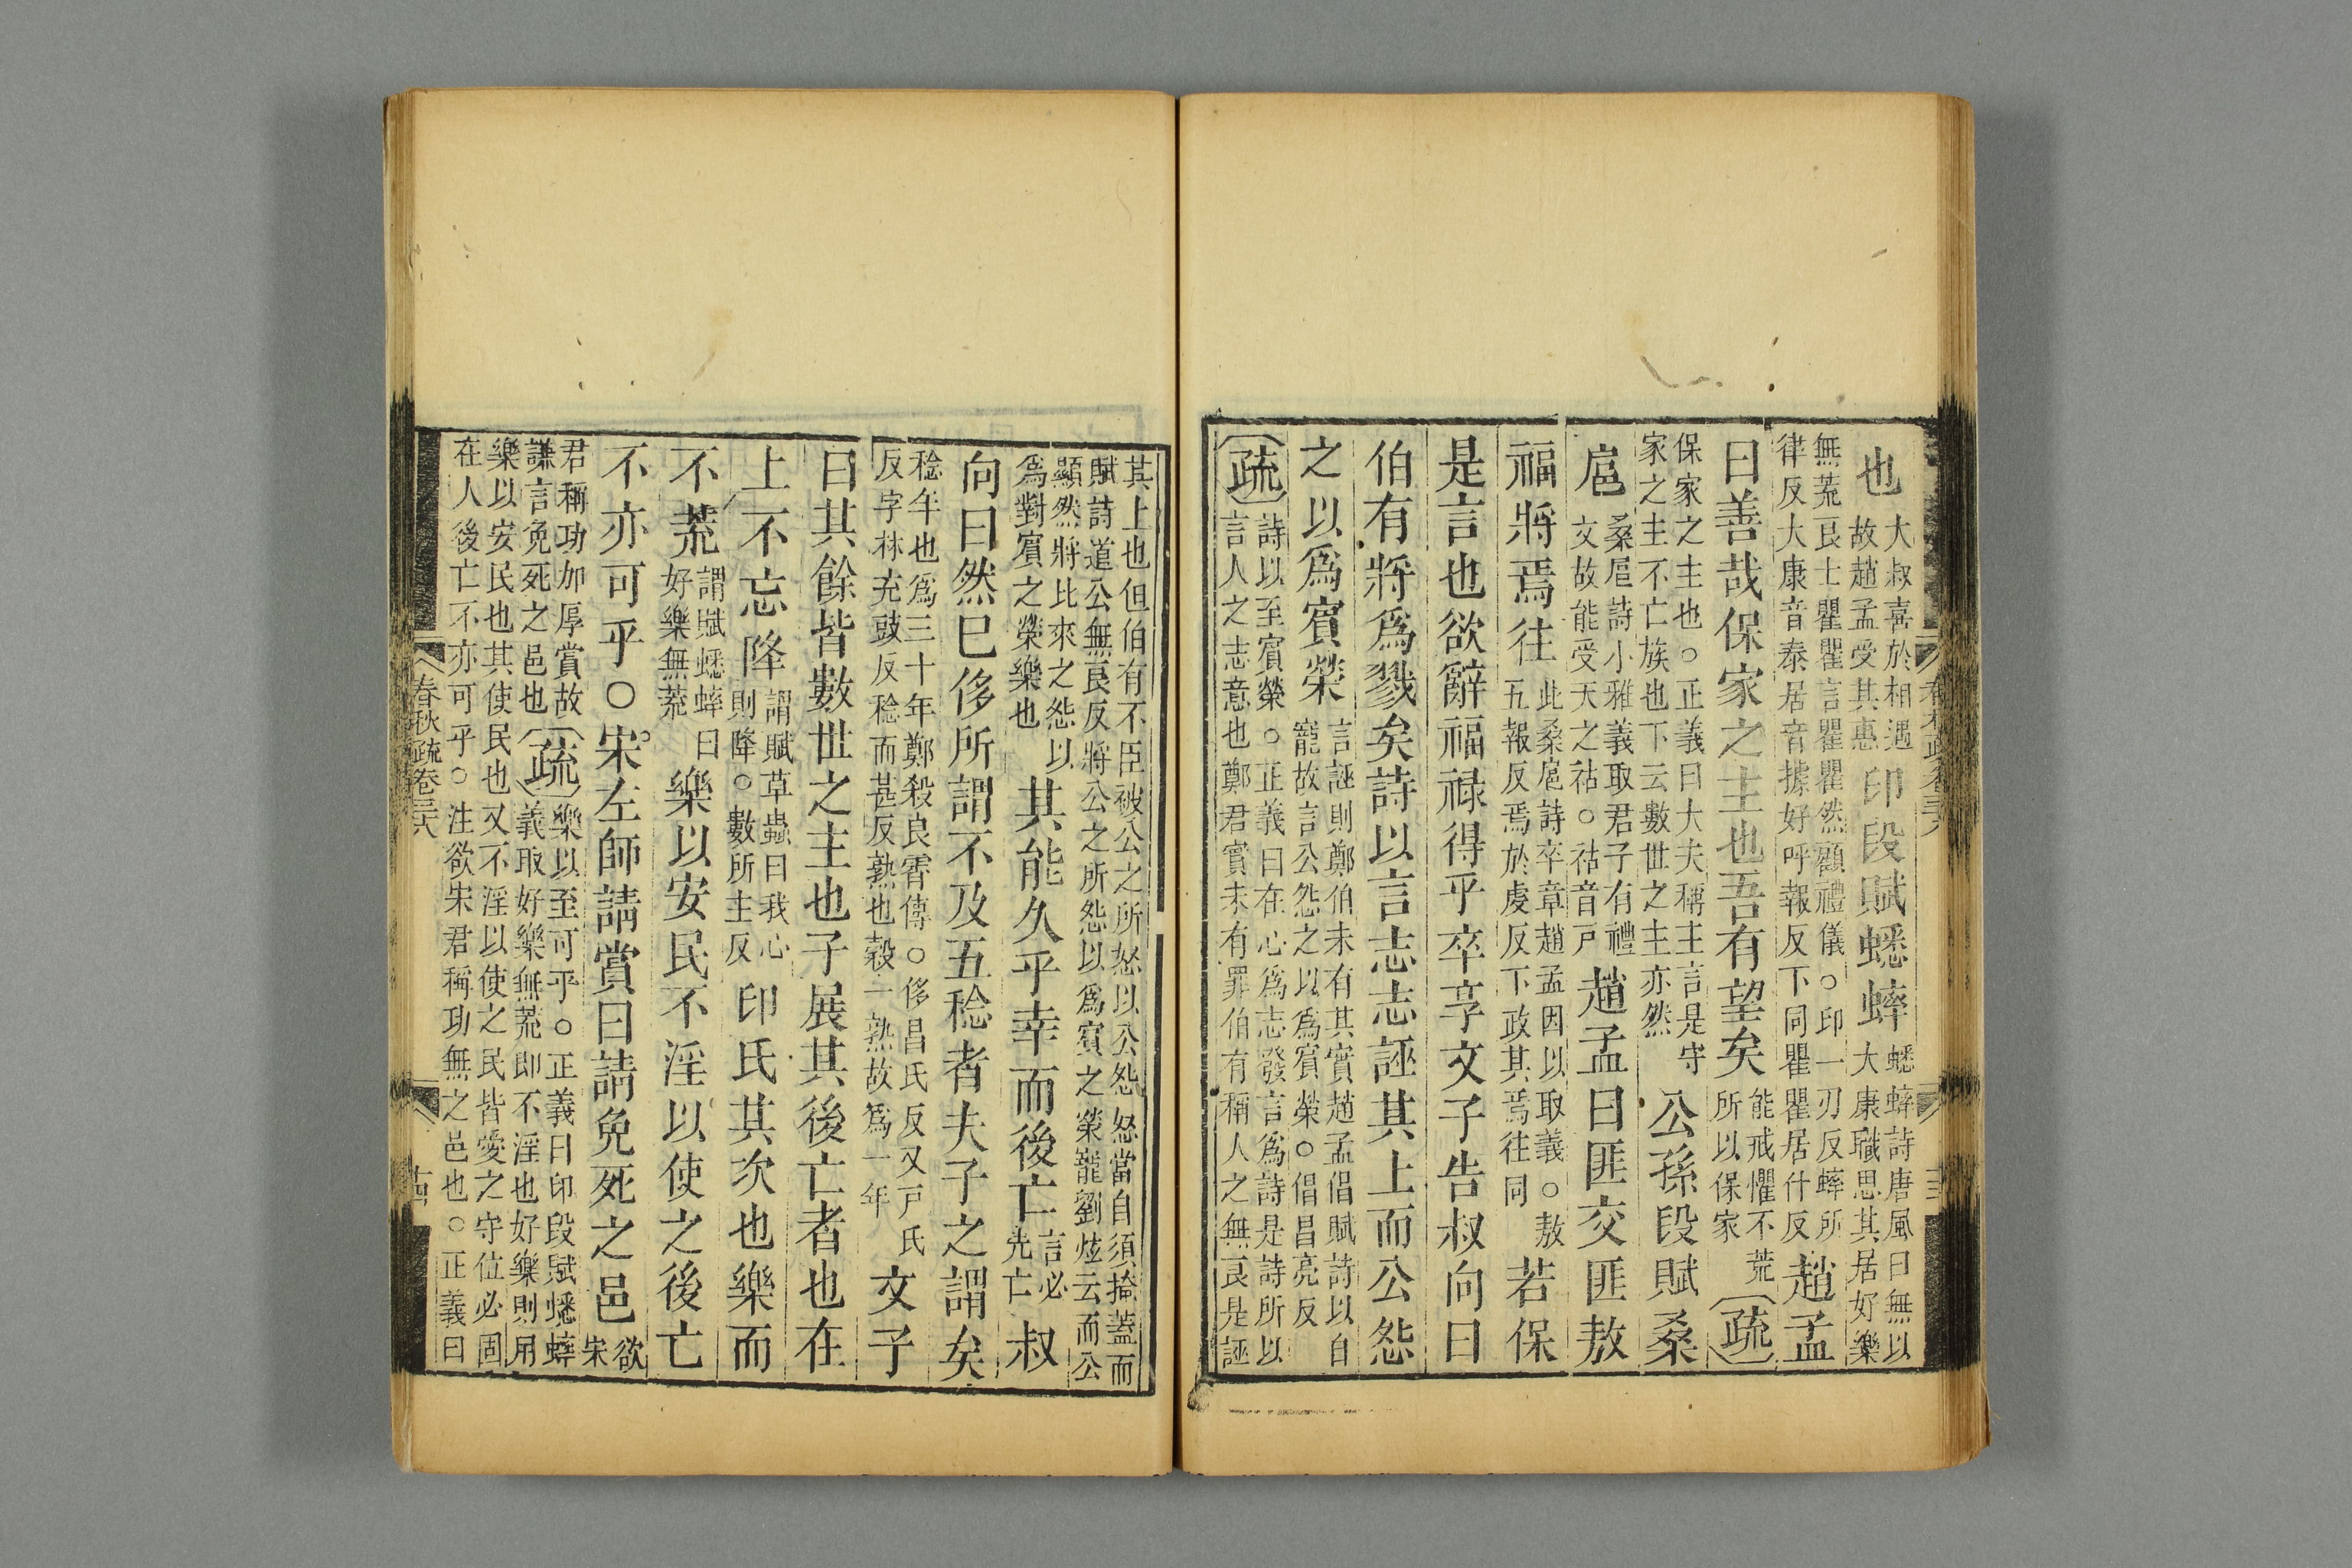 也大叔喜於相遇故趙孟受其惠印段賦蟋蟀蟋蟀詩唐風曰無以大康職思其居好樂
無荒良士瞿瞿言瞿瞿然顧禮儀○印一刃反蟀所律反大康音泰居音據好呼報反下同瞿瞿居什反趙孟
曰善哉保家之主也吾有望矣能戒懼不荒所以保家疏
保家之主也○正義曰大夫稱主言是守家之主不亡族也下云數世之主主亦然公孫段賦桑
扈桑扈詩小雅義取君子有禮文故能受天之祜○祜音戸趙孟曰匪交匪敖
福將焉往此桑扈詩卒章趙孟因以取義○敖五報反焉於虔反下政其焉往同若保
是言也欲辭福禄得乎卒享文子告叔向曰
伯有將爲戮矣詩以言志志誣其上而公怨
之以爲賓榮言誣則鄭伯未有其實趙孟倡賦詩以自寵故言公怨之以爲賓榮○倡昌亮反
疏詩以至賓榮○正義曰在心爲志發言爲詩是詩所以言人之志意也鄭君實未有罪伯有稱人之無良是誣
其上也但伯有不臣被公之所怒以公怨怒當自須掩蓋而賦詩道公無良反將公之所怨以爲賓之榮寵劉炫云而公
顯然將比來之怨以爲對賓之榮樂也其能久乎幸而後亡言必先亡叔
向曰然已侈所謂不及五稔者夫子之謂矣
稔年也爲三十年鄭殺良霄傳○侈昌氏反又戸氏反字林充豉反稔而甚反熟也穀一熟故爲一年文子
曰其餘皆數世之主也子展其後亡者也在
上不忘降謂賦草蟲曰我心則降○數所主反印氏其次也樂而
不荒謂賦蟋蟀曰好樂無荒樂以安民不淫以使之後亡
不亦可乎○宋左師請賞曰請免死之邑欲宋
君稱功加厚賞故謙言免死之邑也疏樂以至可乎○正義曰印段賦蟋蟀義取好樂無荒即不淫也好樂則用
樂以安民也其使民也又不淫以使之民皆愛之守位必固在人後亡不亦可乎○注欲宋君稱功無之邑也○正義曰
春秋疏卷三十八
十四